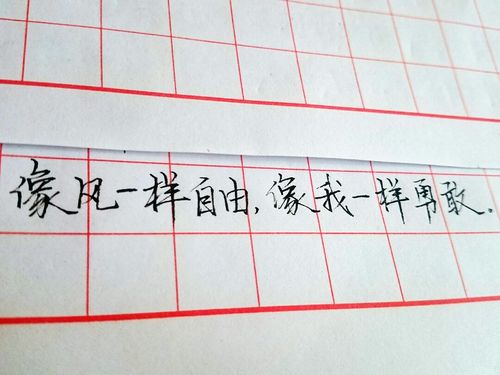 像风一样自由,像我一样勇敢.